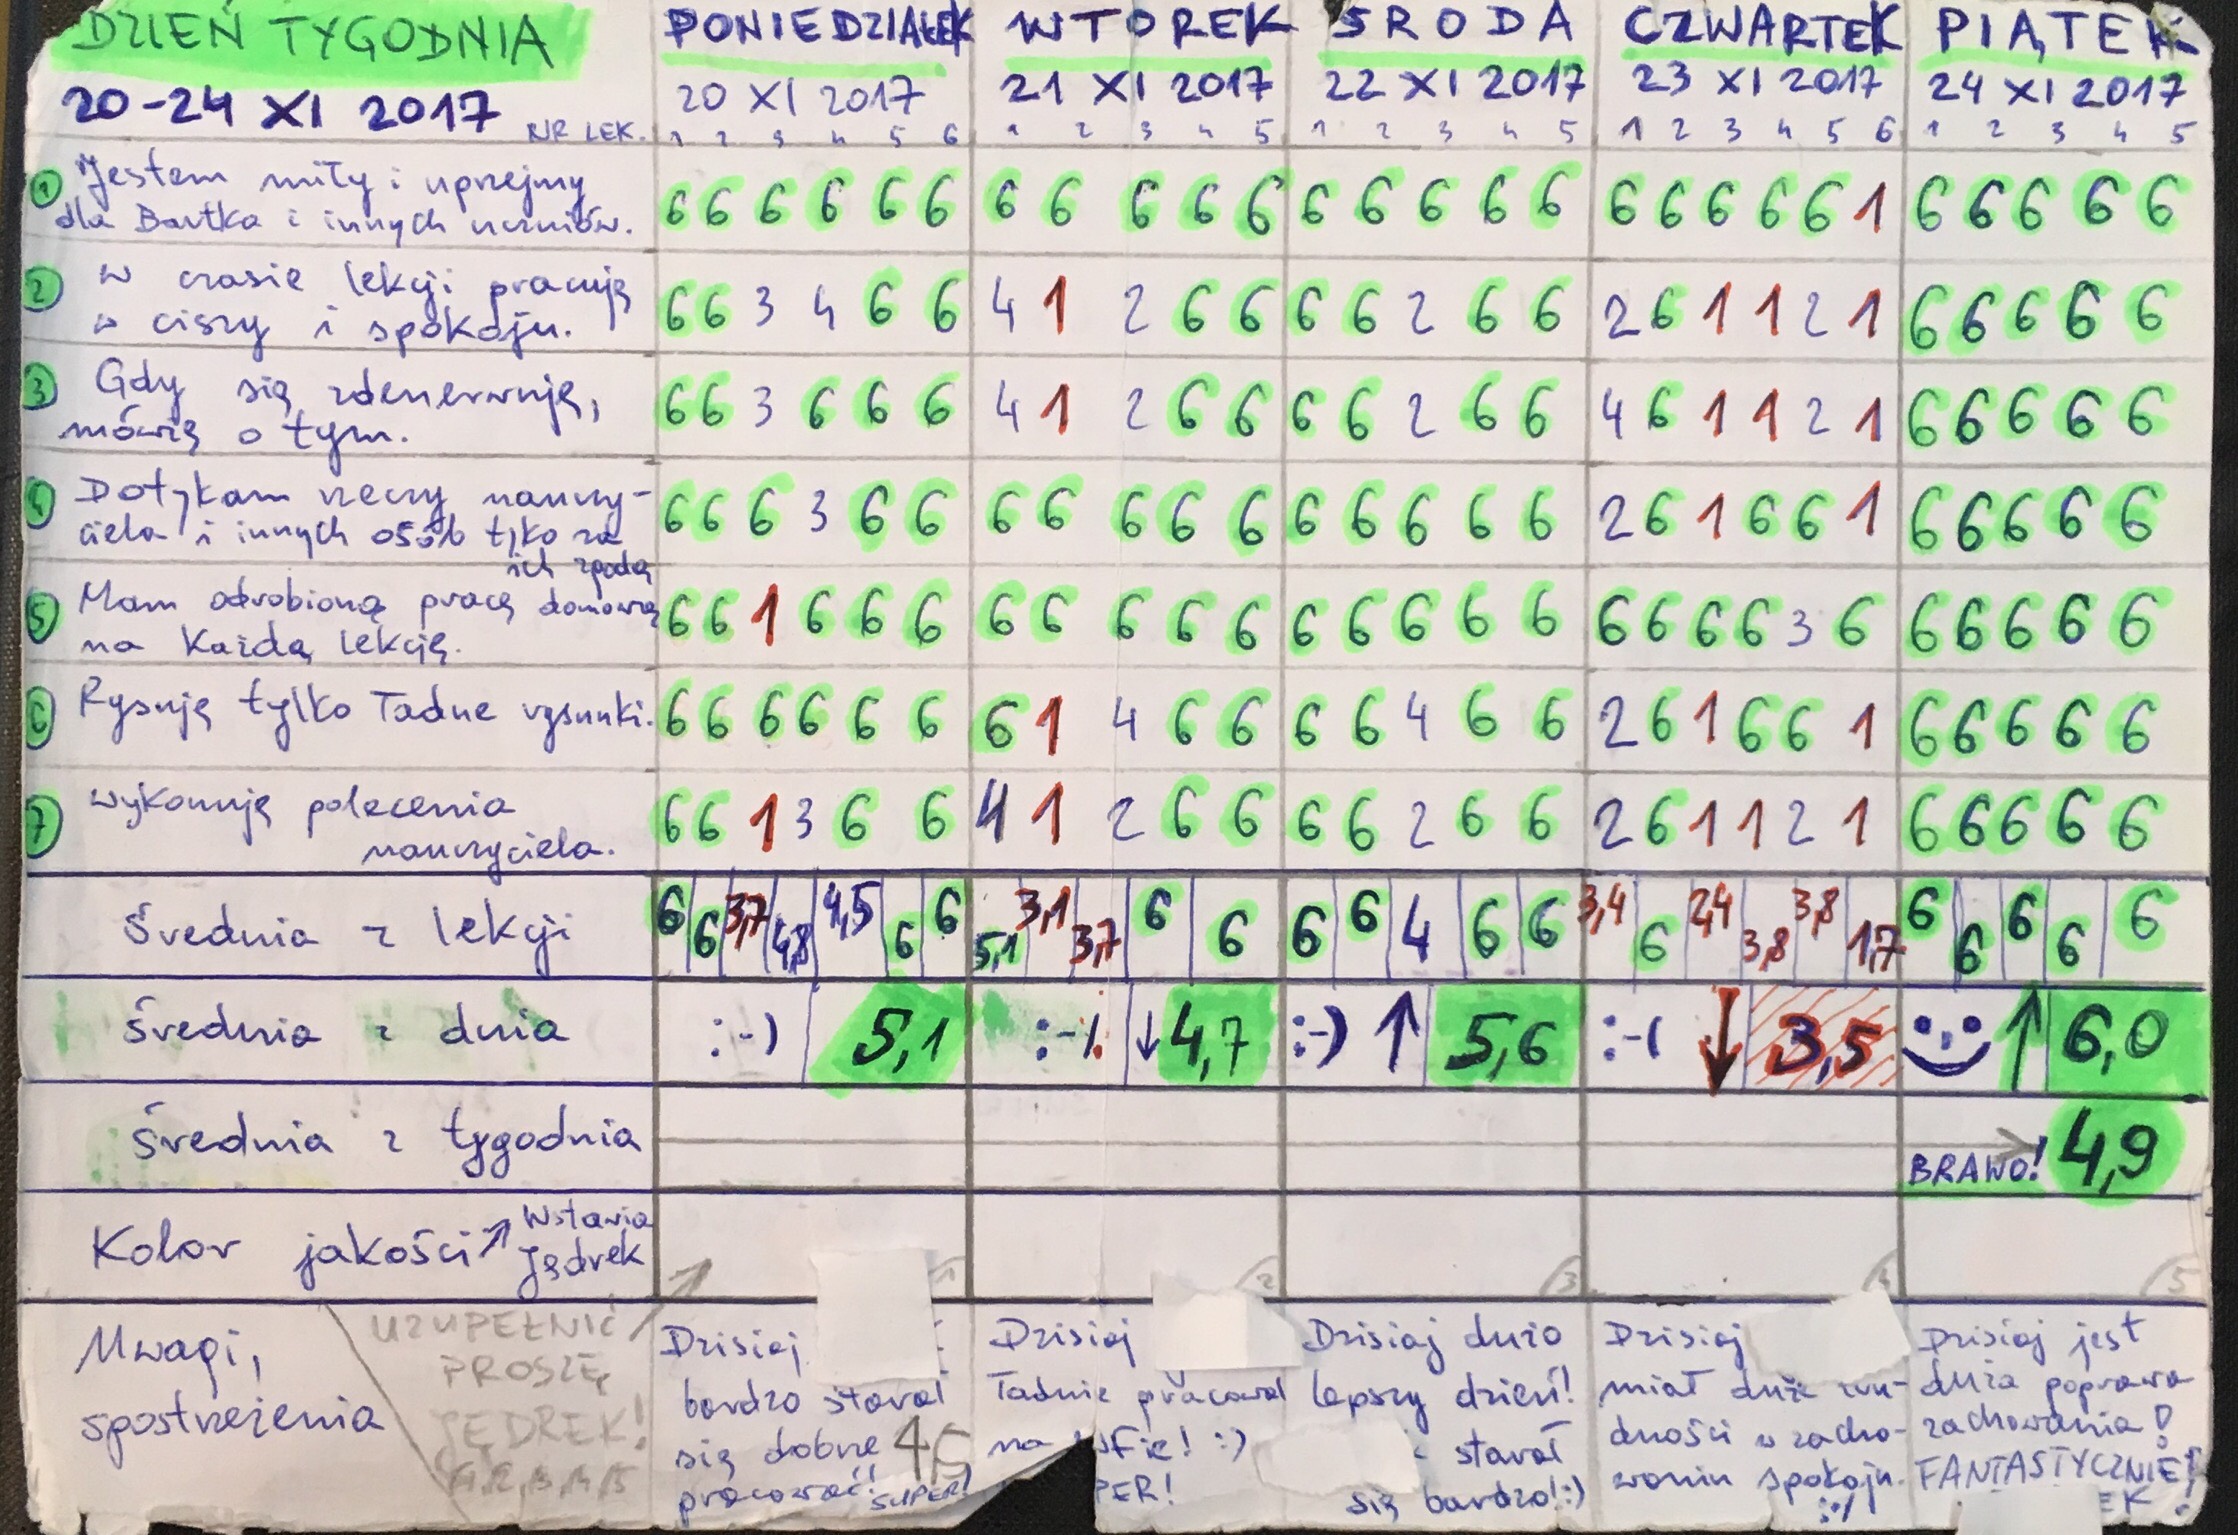 DZIEŃ TYGODNIA PONIEDZIAŁEK WTOREK ŚRODA CZWARTEK PIĄTEK
20-24 XI 2017 20 XI 2017 21 XI 2017 22 XI 2017 23 XI 2017 24 XI 2017
NR LEK. 1 2 3 4 5 6 1 2 3 4 5 1 2 3 4 5 1 2 3 4 5 6 1 2 3 4 5
1 Jestem miły i uprzejmy
dla Bartka i innych uczniów. 6 6 6 6 6 6 6 6 6 6 6 6 6 6 6 6 6 6 6 6 6 1 6 6 6 6 6
2 W czasie lekcji pracuję
w ciszy i spokoju. 6 6 3 4 6 6 4 1 2 6 6 6 6 2 6 6 2 6 1 1 2 1 6 6 6 6 6
3 Gdy się zdenerwuję,
mówię o tym. 6 6 3 6 6 6 4 1 2 6 6 6 6 2 6 6 4 6 1 1 2 1 6 6 6 6 6
4 Dotykam rzeczy nauczy-
ciela i innych osób tylko za
ich zgodą 6 6 6 3 6 6 6 6 6 6 6 6 6 6 6 6 2 6 1 6 6 1 6 6 6 6 6
5 Mam odrobioną pracę domową
na każdą lekcję. 6 6 1 6 6 6 6 6 6 6 6 6 6 6 6 6 6 6 6 6 3 6 6 6 6 6 6
6 Rysuję tylko ładne rysunki. 6 6 6 6 6 6 6 1 4 6 6 6 6 4 6 6 2 6 1 6 6 1 6 6 6 6 6
7 Wykonuję polecenia
nauczyciela. 6 6 1 3 6 6 4 1 2 6 6 6 6 2 6 6 2 6 1 1 2 1 6 6 6 6 6
Średnia z lekcji 6 6 3,7 4,8 4,5 6 6 5,1 3,1 3,7 6 6 6 6 4 6 6 3,4 6 2,4 3,8 3,8 1,7 6 6 6 6 6
Średnia z dnia :-) 5,1 :-\ ↓ 4,7 :-) ↑ 5,6 :-( ↓ 3,5 ↑ 6,0
Średnia z tygodnia BRAWO! 4,9
Kolor jakości ↗ Wstawia
Jędrek
1 2 3 4 5
Uwagi,
spostrzeżenia
UZUPEŁNIĆ
PROSZĘ
JĘDREK!
1,2,3,4,5
Dzisiaj
bardzo starał
się dobrze
pracować!! SUPER!
Dzisiaj
ładnie pracował
na
:)
Dzisiaj dużo
lepszy dzień!
starał
się bardzo!:)
Dzisiaj
miał duże tru-
dności w zacho-
waniu spokoju.
:-/
Dzisiaj jest
duża poprawa
zachowania!
FANTASTYCZNIE!